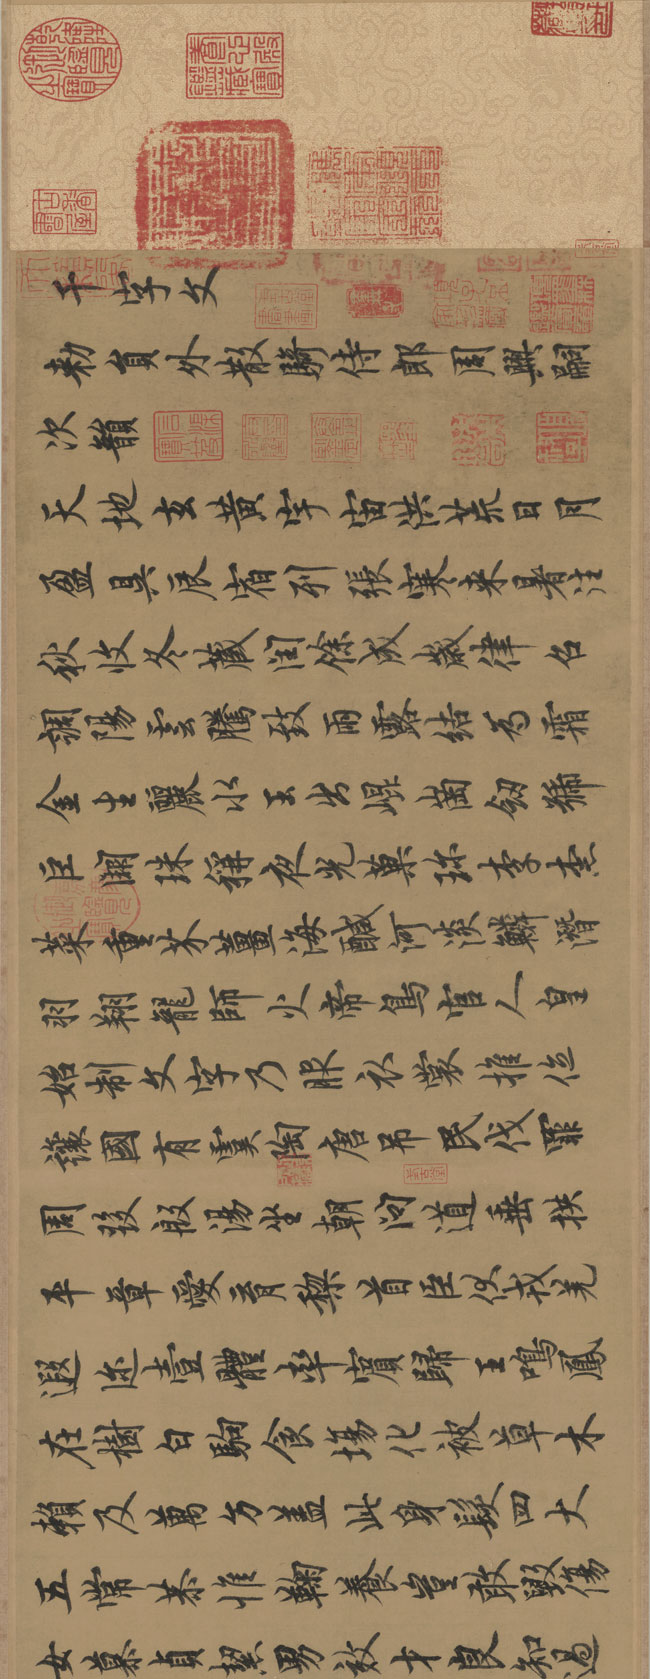 千字文
勑員外散騎侍郎周興嗣
次韻
天地玄黃宇宙洪荒日月
盈昃辰宿列張寒來暑往
秋收冬藏閏餘成歲律召
調陽雲騰致雨露結為霜
金生麗水玉出崐崗劒號
巨闕珠稱夜光菓珍李柰
菜重芥薑海醎河淡鱗潛
羽翔龍師火帝鳥官人皇
始制文字乃服衣裳推位
讓國有虞陶唐吊民伐罪
周發殷湯坐朝問道垂拱
平章愛育黎首臣伏戎羌
遐迩壹體率賓歸王鳴鳳
在樹白駒食場化被草木
賴及萬方蓋此身髮四大
五常恭惟鞠養豈敢毀傷
女慕貞絜男效才良知過